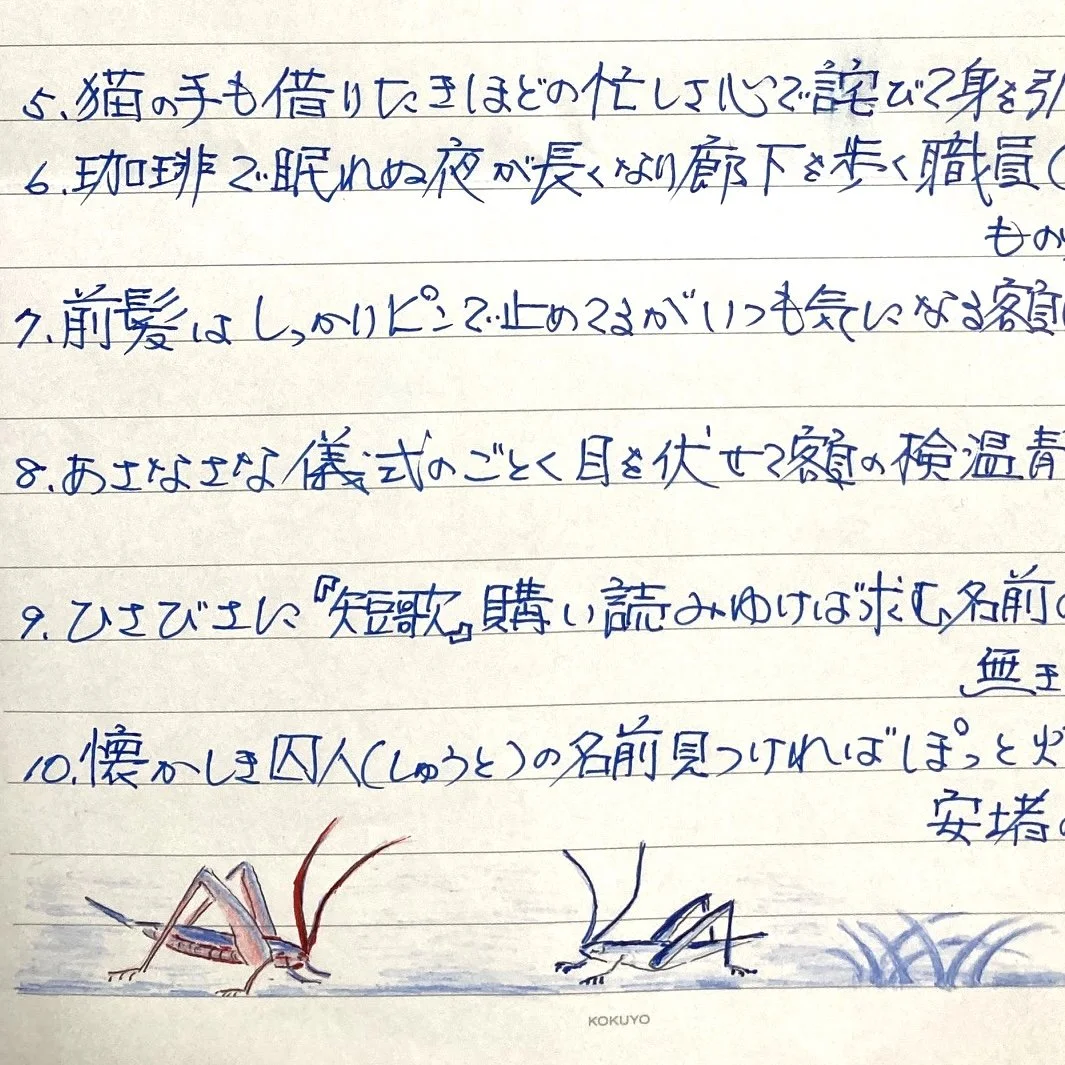 5.猫の手も借りたきほどの忙しさ心で詫びて身を引
6.珈琲で眠れぬ夜が長くなり廊下を歩く職員(
もの
7.前髪はしっかりピンで止めてるがいつも気になる額
8.あさなさな儀式のごとく目を伏せて額の検温青
9.ひさびさに『短歌』購い読みゆけば求む名前
無き
10.懐かしき囚人(しゅうと)の名前見つければぽっと
安堵の
KOKUYO